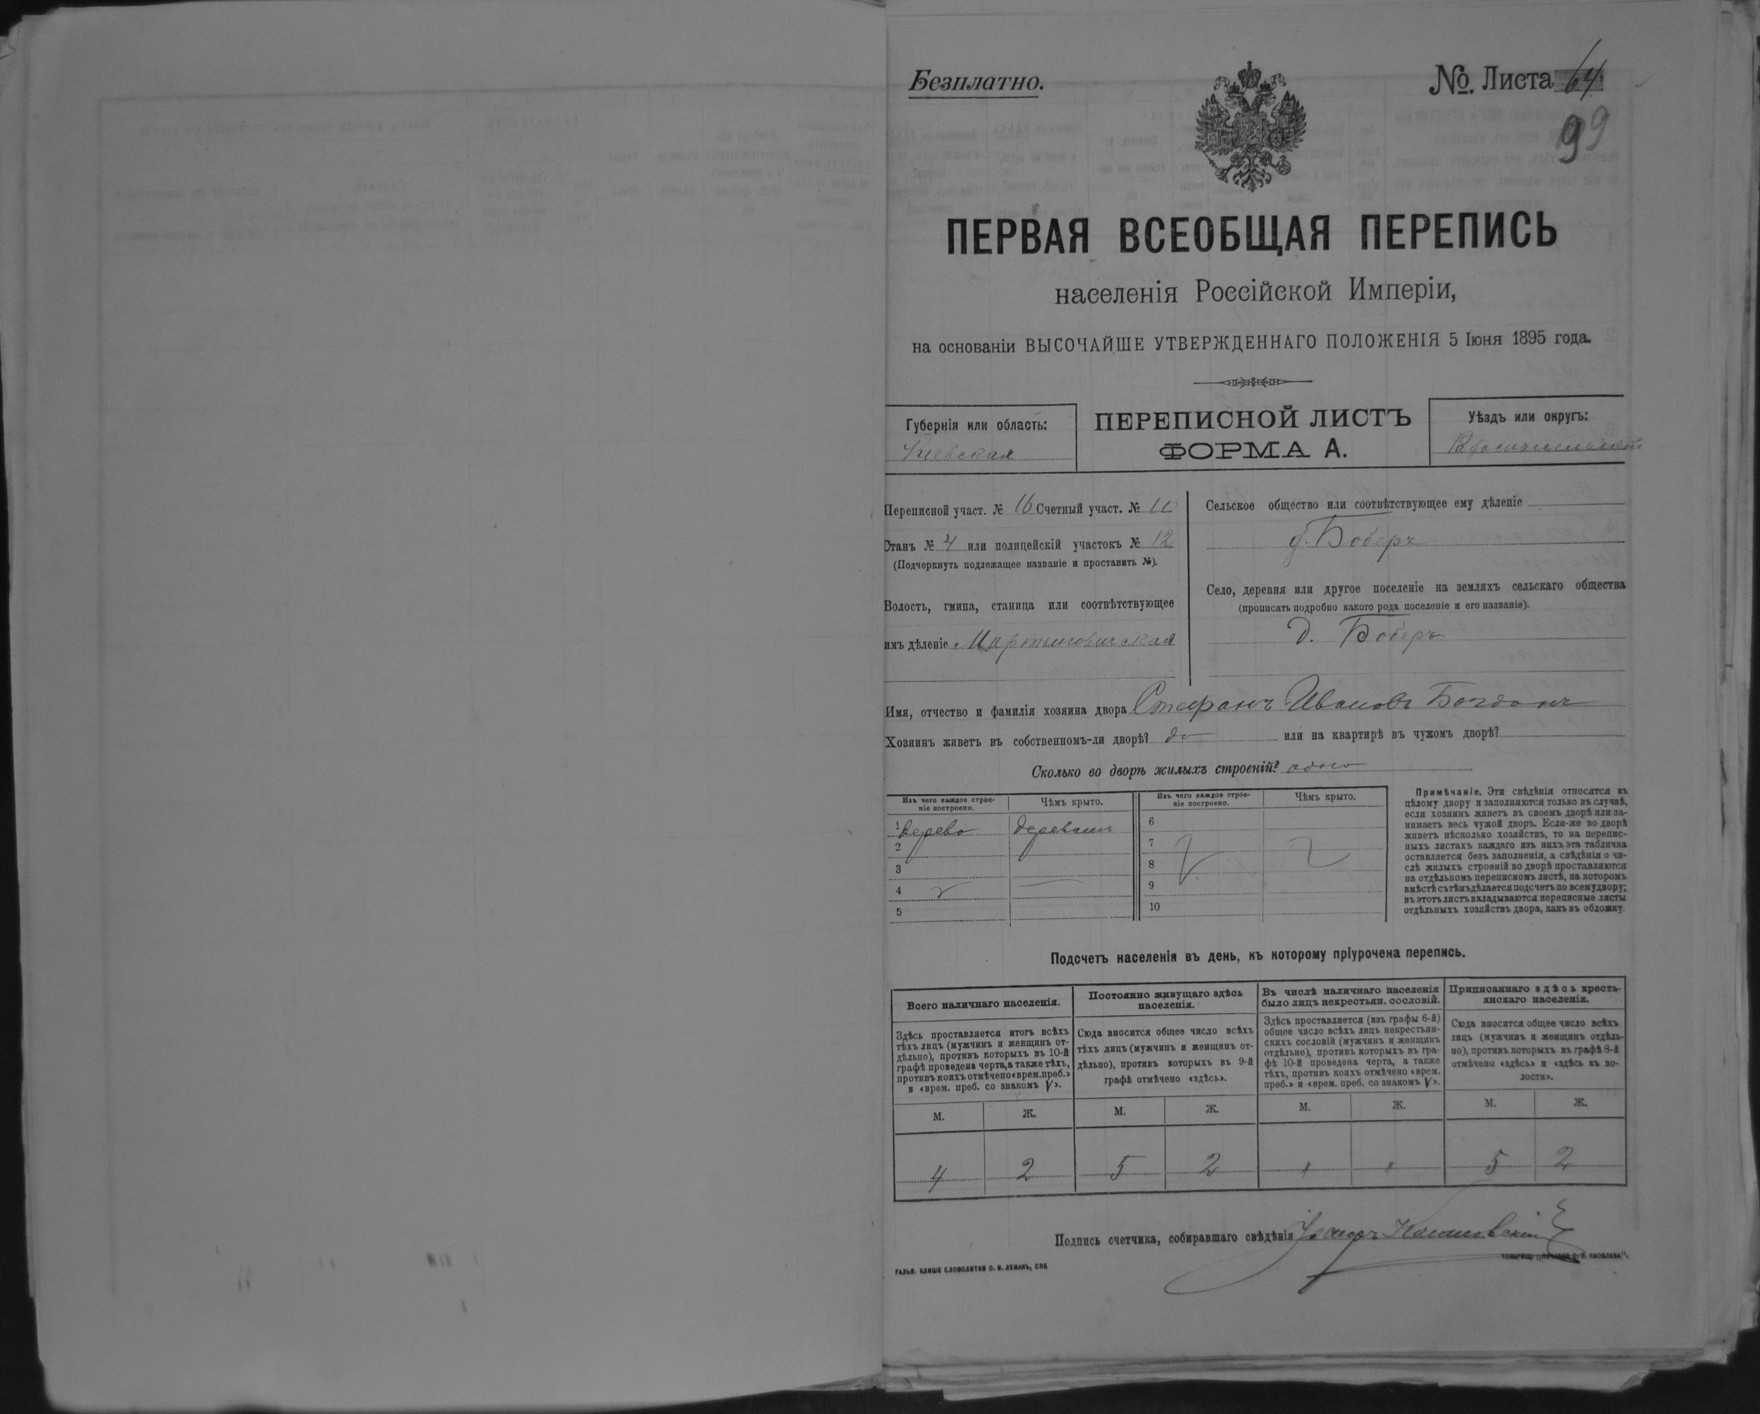 Безплатно.
№ Листа 64
99
ПЕРВАЯ ВСЕОБЩАЯ ПЕРЕПИСЬ
населенія Россійской Имперіи,
на основаніи ВЫСОЧАЙШЕ УТВЕРЖДЕННАГО ПОЛОЖЕНІЯ 5 Іюня 1895 года.
Губернія или область:
Кіевская
ПЕРЕПИСНОЙ ЛИСТЪ
ФОРМА А.
Уѣздъ или округъ:
Переписной участ. № 16 Счетный участ. № 11
Станъ № 4 или полицейскій участокъ № 12
(Подчеркнуть подлежащее названіе и проставить №).
Волость, гмина, станица или соотвѣтствующее
имъ дѣленіе Мартыновичская
Сельское общество или соотвѣтствующее ему дѣленіе
Боберъ
Село, деревня или другое поселеніе на земляхъ сельскаго общества
(прописать подробно какого рода поселеніе и его названіе).
д. Боберъ
Имя, отчество и фамилія хозяина двора Стефанъ Ивановъ Богданъ
Хозяинъ живетъ въ собственномъ-ли дворѣ? да или на квартирѣ въ чужомъ дворѣ?
Сколько во дворѣ жилыхъ строеній? одно
Изъ чего каждое строе-
ніе построено.
Чѣмъ крыто.
Изъ чего каждое строе-
ніе построено.
Чѣмъ крыто.
1 дерево деревомъ
2
3
4
5
6
7
8
9
10
Примѣчаніе. Эти свѣдѣнія относятся къ
цѣлому двору и заполняются только въ случаѣ,
если хозяинъ живетъ въ своемъ дворѣ или за-
нимаетъ весь чужой дворъ. Если-же во дворѣ
живетъ нѣсколько хозяйствъ, то на перепис-
ныхъ листахъ каждаго изъ нихъ эта табличка
оставляется безъ заполненія, а свѣдѣнія о чи-
слѣ жилыхъ строеній во дворѣ проставляются
на отдѣльномъ переписномъ листѣ, на которомъ
вмѣстѣ съ тѣмъ дѣлается подсчетъ по всему двору;
въ этотъ листъ вкладываются переписные листы
отдѣльныхъ хозяйствъ двора, какъ въ обложку.
Подсчетъ населенія въ день, къ которому пріурочена перепись.
Всего наличнаго населенія.
Здѣсь проставляется итогъ всѣхъ
тѣхъ лицъ (мужчинъ и женщинъ от-
дѣльно), противъ которыхъ въ 10-й
графѣ проведена черта, а также тѣхъ,
противъ коихъ отмѣчено «врем. преб.»
и «врем. преб. со знакомъ V».
Постоянно живущаго здѣсь
населенія.
Сюда вносится общее число всѣхъ
тѣхъ лицъ (мужчинъ и женщинъ от-
дѣльно), противъ которыхъ въ 9-й
графѣ отмѣчено «здѣсь».
Въ числѣ наличнаго населенія
было лицъ некрестьян. сословій.
Здѣсь проставляется (изъ графы 6-й)
общее число всѣхъ лицъ некрестьян-
скихъ сословій (мужчинъ и женщинъ
отдѣльно), противъ которыхъ въ гра-
фѣ 10-й проведена черта, а также
тѣхъ, противъ коихъ отмѣчено «врем.
преб.» и «врем. преб. со знакомъ V».
Приписаннаго здѣсь кресть-
янскаго населенія.
Сюда вносится общее число всѣхъ
лицъ (мужчинъ и женщинъ отдѣль-
но), противъ которыхъ въ графѣ 8-й
отмѣчено «здѣсь» и «здѣсь къ во-
лости».
М. Ж. М. Ж. М. Ж. М. Ж.
4 2 5 2 " " 5 2
Подпись счетчика, собиравшаго свѣдѣнія
ГАЛЬВ. КЛИШЕ СЛОВОЛИТНИ О. И. ЛЕМАНЪ, СПБ